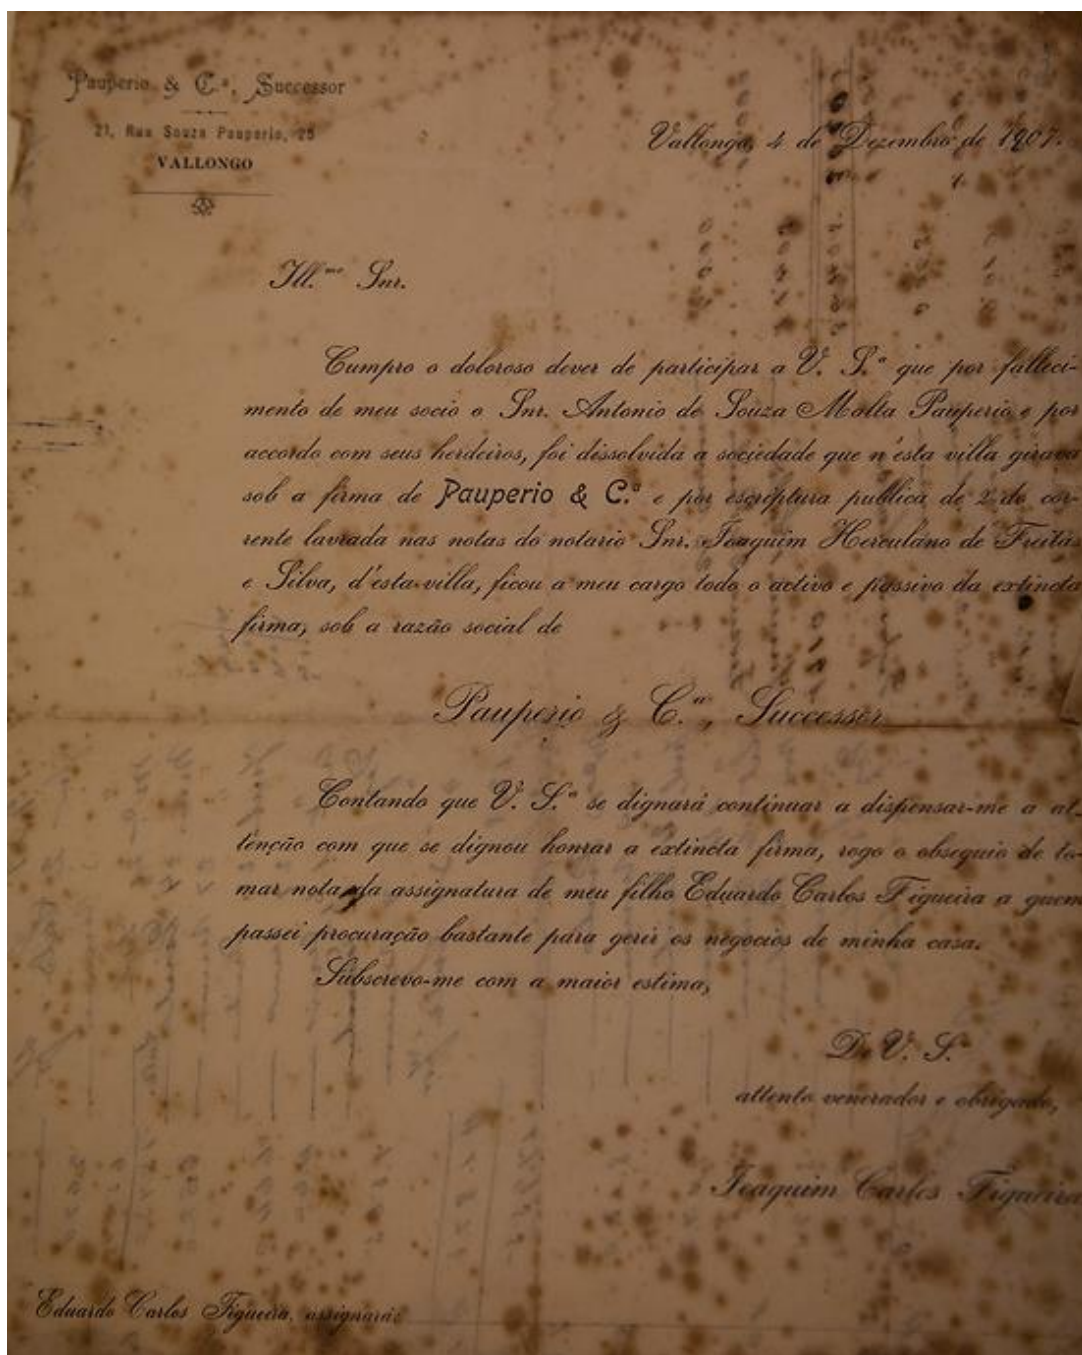 Pauperio & C.ª, Successor
21, Rua Souza Pauperio, 25
VALLONGO
Vallongo, 4 de Dezembro de 1907.
Ill.mo Snr.
Cumpro o doloroso dever de participar a V. S.ª que por falleci-
mento de meu socio o Snr. Antonio de Souza Malta Pauperio e por
accordo com seus herdeiros, foi dissolvida a sociedade que n'esta villa girava
sob a firma de Pauperio & C.ª e por escriptura publica de 2 do cor-
rente lavrada nas notas do notario Snr. Joaquim Herculano de Freitas
e Silva, d'esta villa, ficou a meu cargo todo o activo e passivo da extincta
firma, sob a razão social de
Pauperio & C.ª, Successor
Contando que V. S.ª se dignará continuar a dispensar-me a at-
tenção com que se dignou honrar a extincta firma, rogo o obsequio de to-
mar nota da assignatura de meu filho Eduardo Carlos Figueira a quem
passei procuração bastante para gerir os negocios de minha casa.
Subscrevo-me com a maior estima,
De V. S.ª
attento venerador e obrigado,
Joaquim Carlos Figueira
Eduardo Carlos Figueira, assignará: